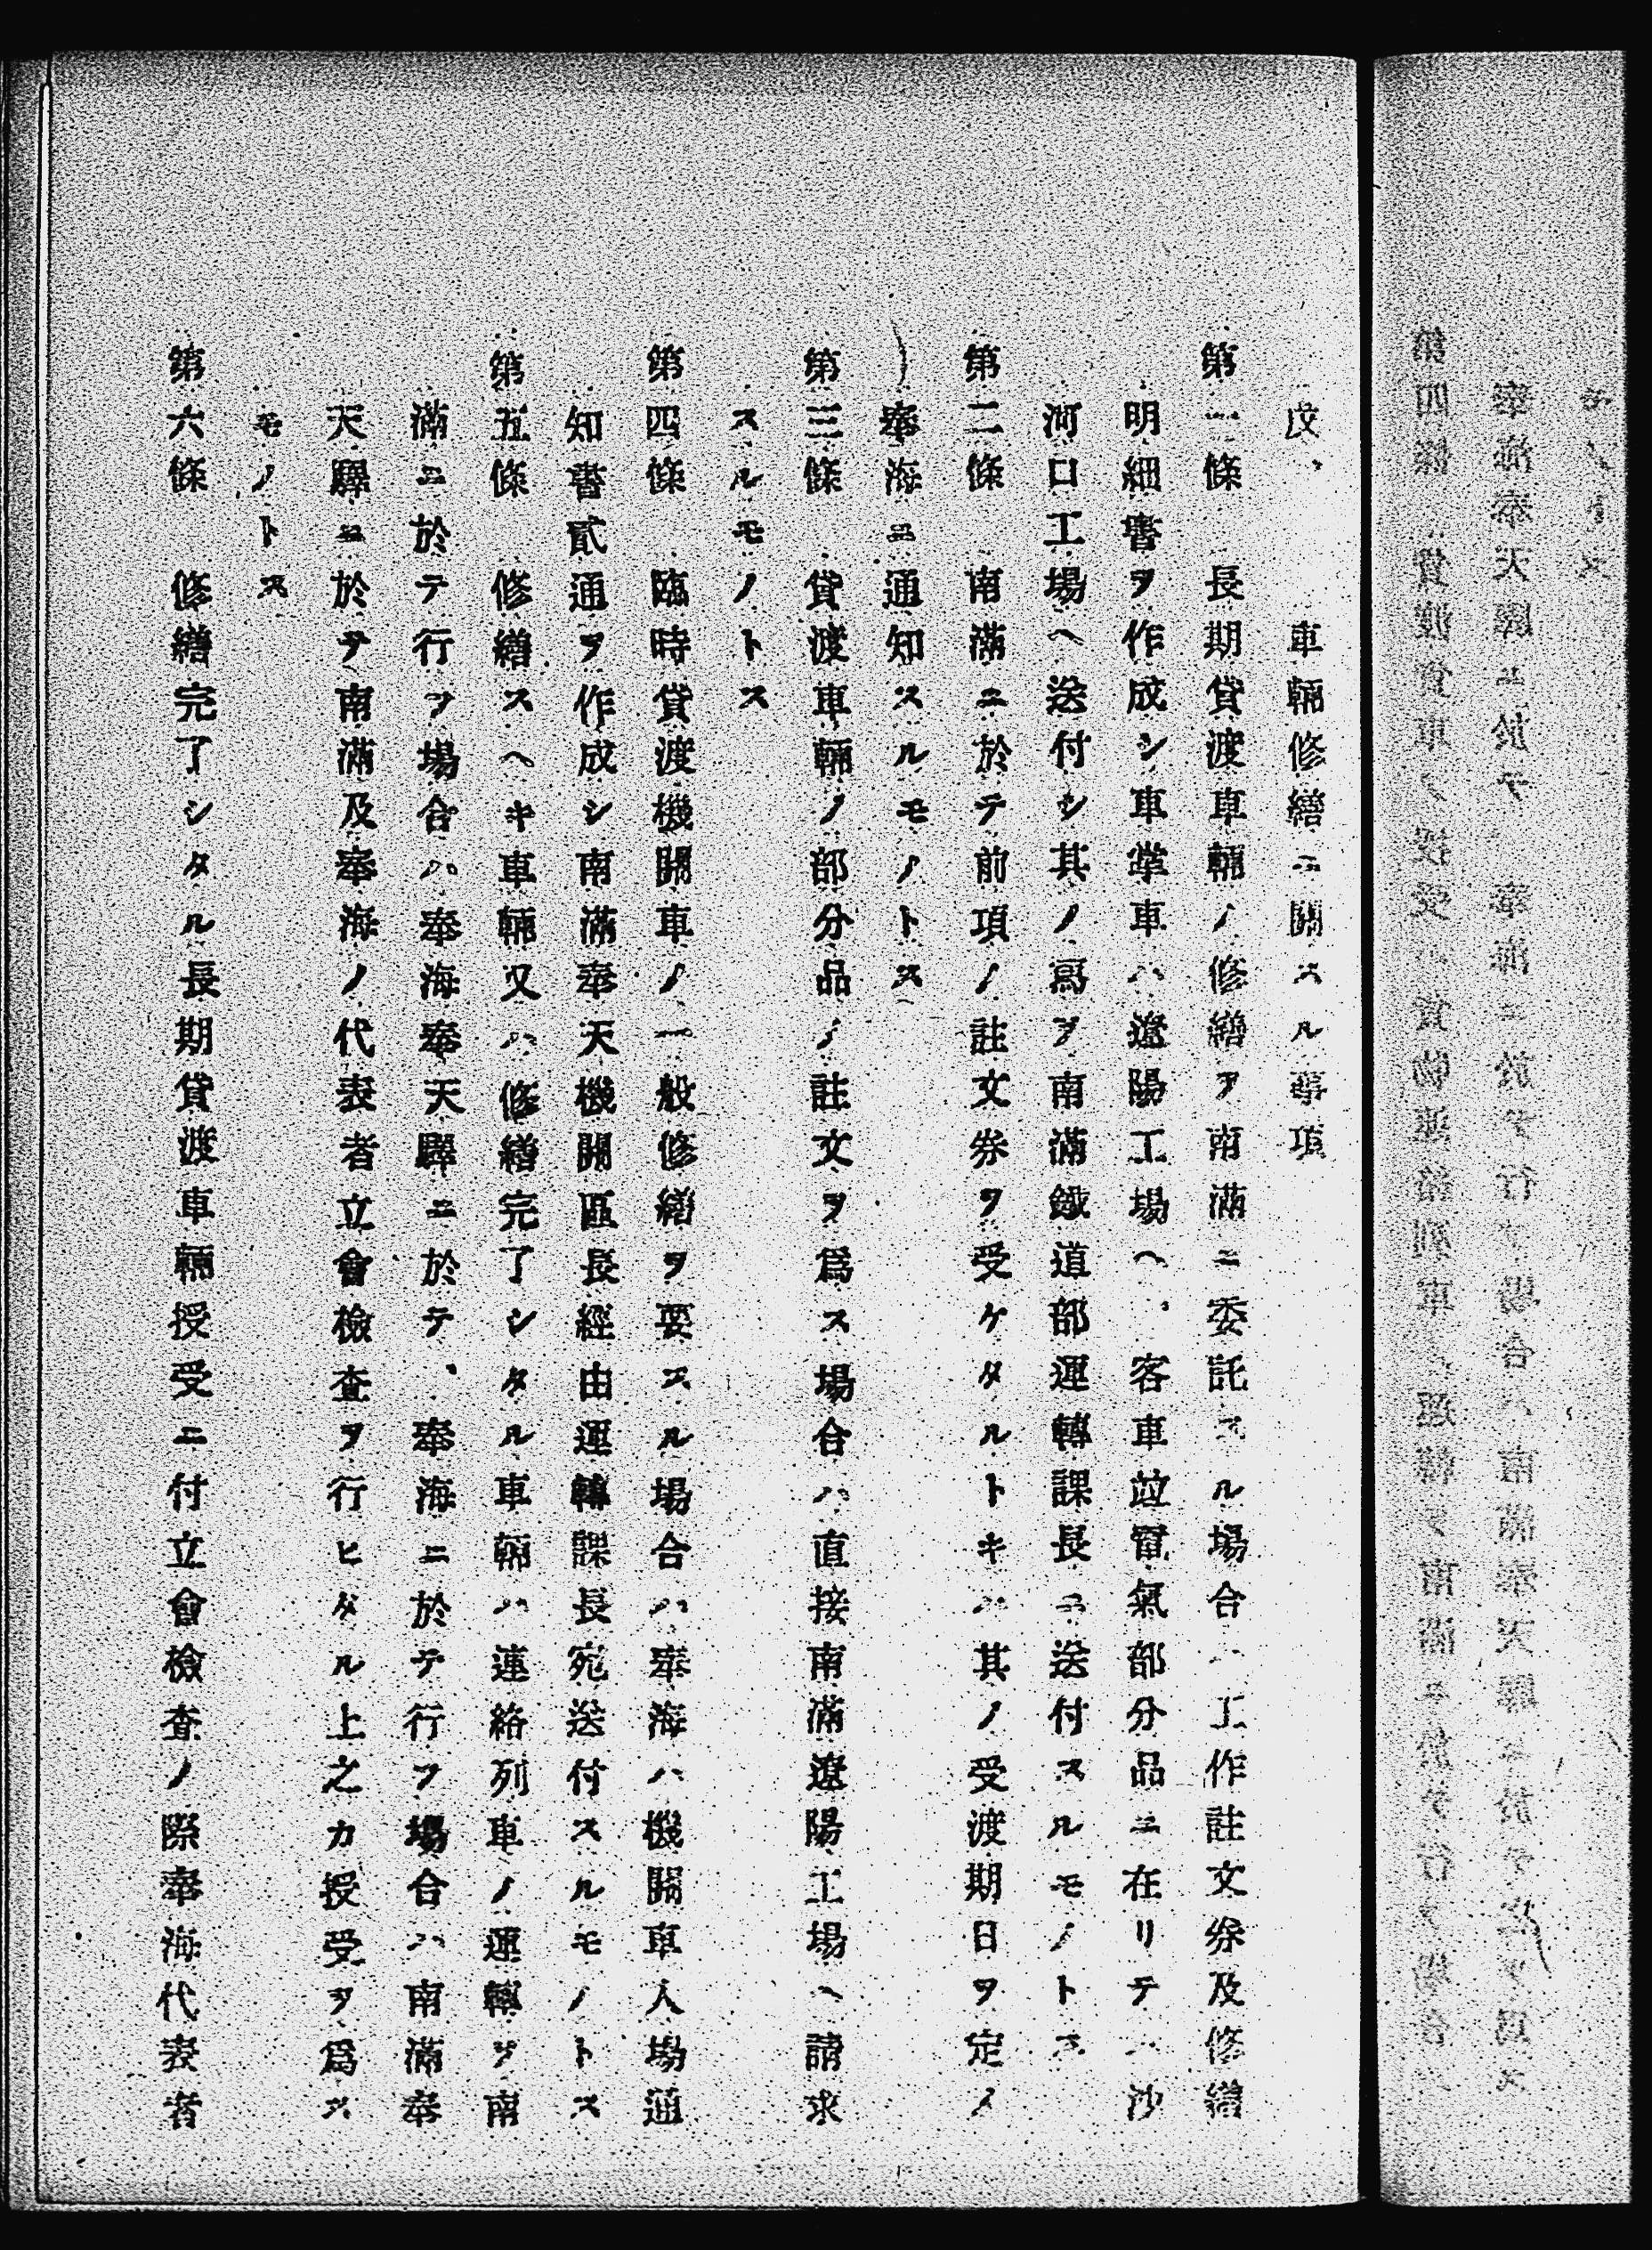 戊、　車輛修繕ニ關スル事項
第一條　長期貸渡車輛ノ修繕ヲ南滿ニ委託スル場合ハ工作註文券及修繕
明細書ヲ作成シ車掌車ハ遼陽工場ヘ、客車竝電氣部分品ニ在リテハ沙
河口工場ヘ送付シ其ノ寫ヲ南滿鐵道部運轉課長ニ送付スルモノトス
第二條　南滿ニ於テ前項ノ註文券ヲ受ケタルトキハ其ノ受渡期日ヲ定メ
奉海ニ通知スルモノトス
第三條　貸渡車輛ノ部分品ノ註文ヲ爲ス場合ハ直接南滿遼陽工場ヘ請求
スルモノトス
第四條　臨時貸渡機關車ノ一般修繕ヲ要スル場合ハ奉海ハ機關車入場通
知書貳通ヲ作成シ南滿奉天機關區長經由運轉課長宛送付スルモノトス
第五條　修繕スヘキ車輛又ハ修繕完了シタル車輛ハ連絡列車ノ運轉ヲ南
滿ニ於テ行フ場合ハ奉海奉天驛ニ於テ、奉海ニ於テ行フ場合ハ南滿奉
天驛ニ於テ南滿及奉海ノ代表者立會檢査ヲ行ヒタル上之カ授受ヲ爲ス
モノトス
第六條　修繕完了シタル長期貸渡車輛授受ニ付立會檢査ノ際奉海代表者